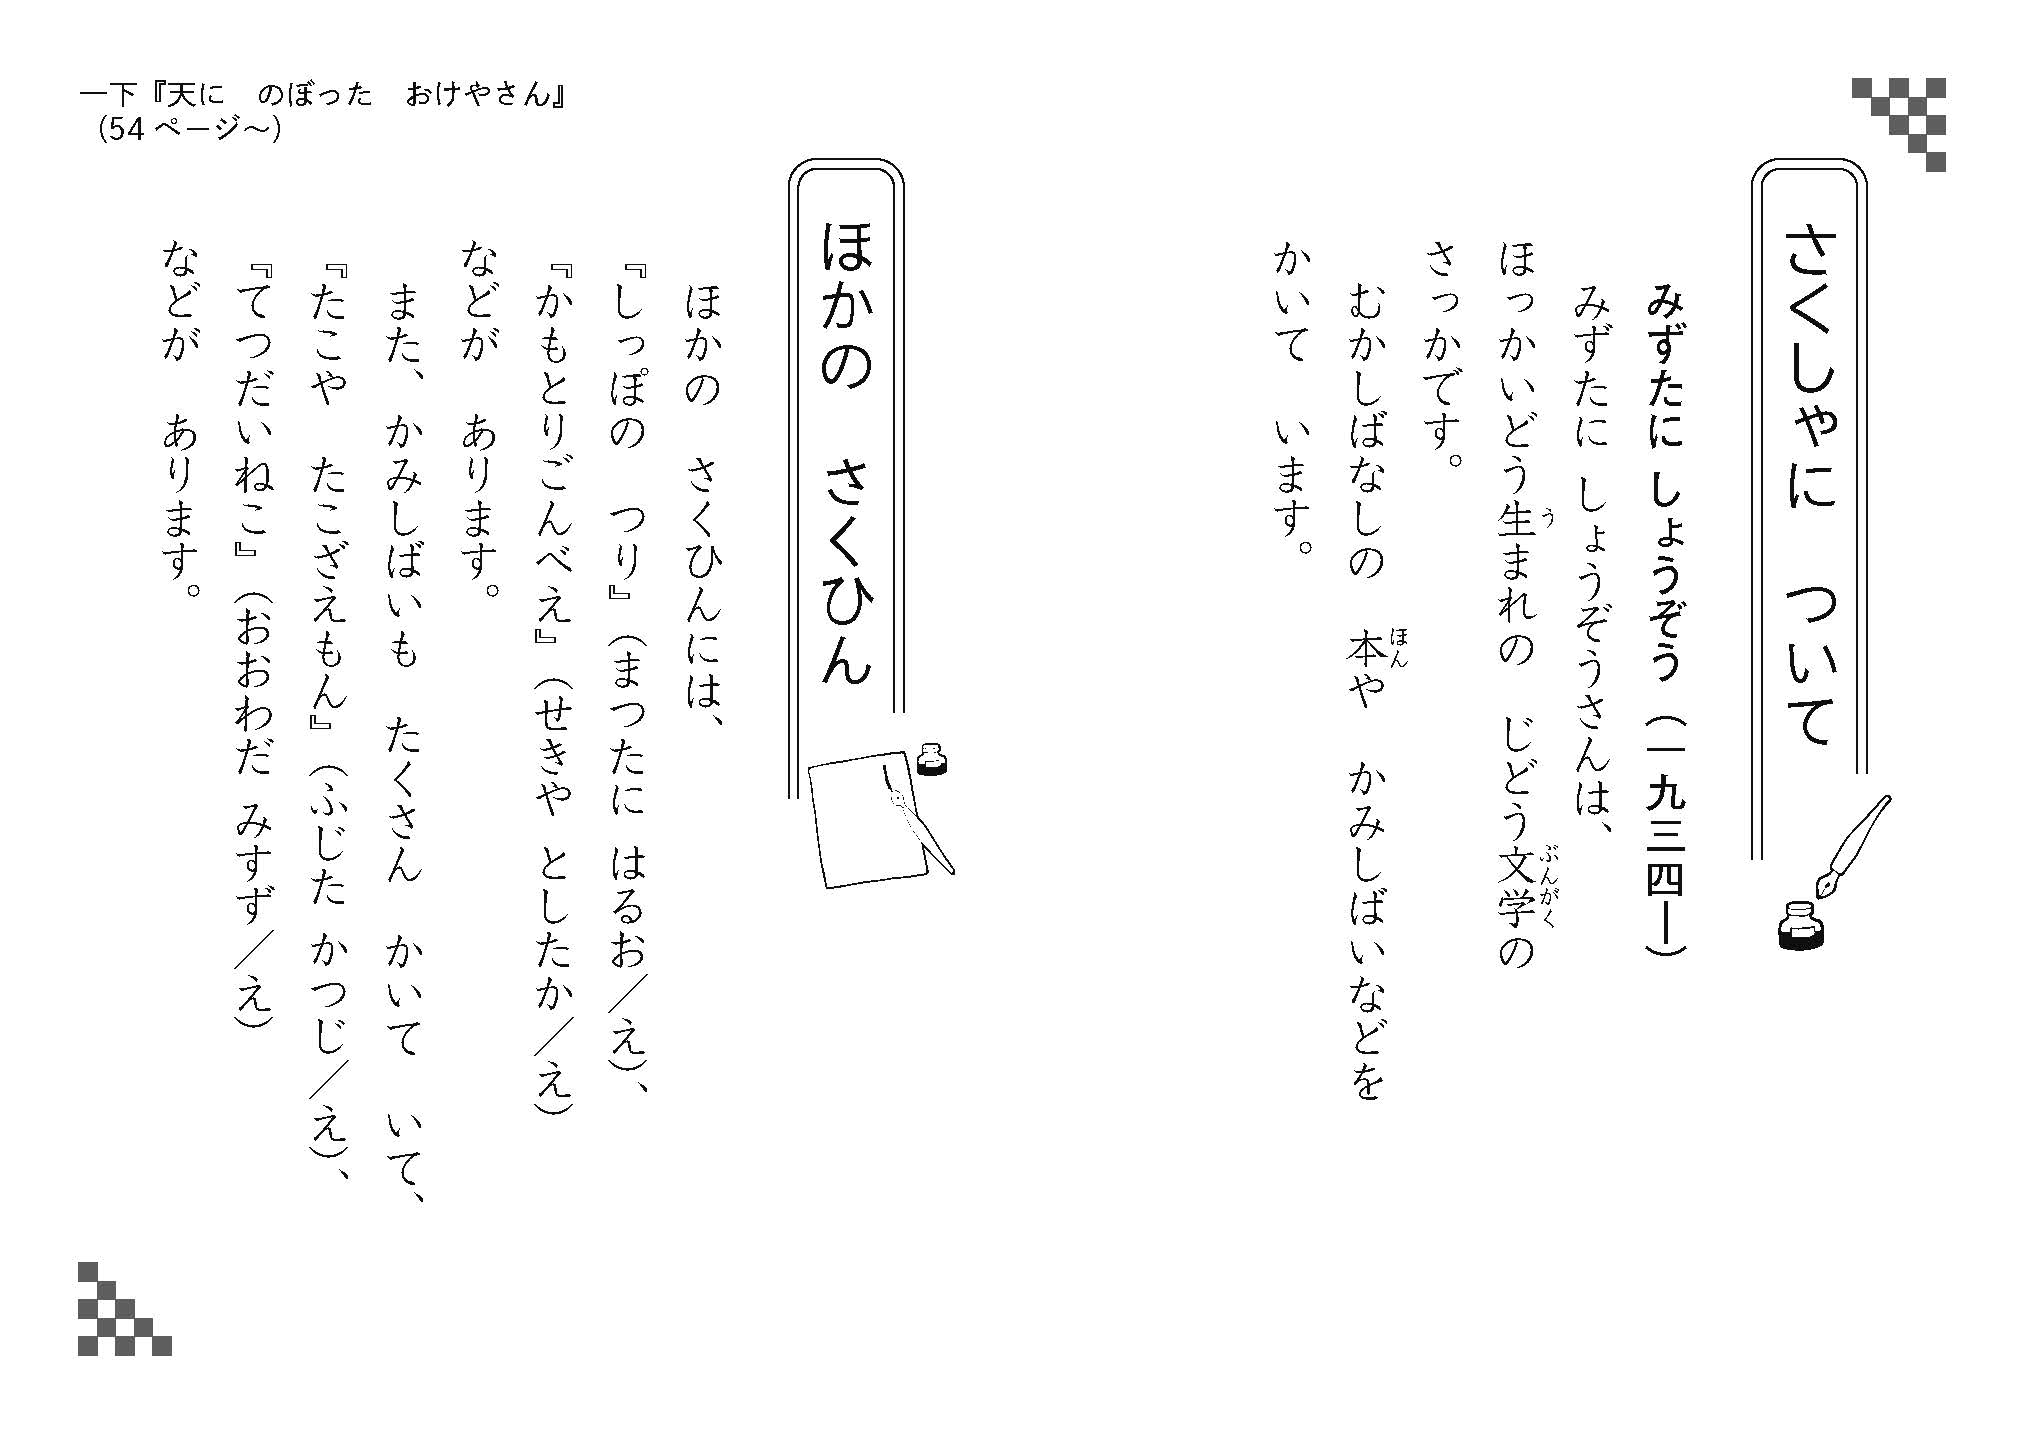 一下『天に　のぼった　おけやさん』
（54ページ～）
さくしゃに　ついて
みずたに しょうぞう（一九三四―）
みずたに しょうぞうさんは、
ほっかいどう生まれの　じどう文学の
さっかです。
むかしばなしの　本や　かみしばいなどを
かいて　います。
ほかの　さくひん
ほかの　さくひんには、
『しっぽの　つり』（まつたに はるお／え）、
『かもとりごんべえ』（せきや としたか／え）
などが　あります。
また、かみしばいも　たくさん　かいて　いて、
『たこや　たこざえもん』（ふじた かつじ／え）、
『てつだいねこ』（おおわだ みすず／え）
などが　あります。